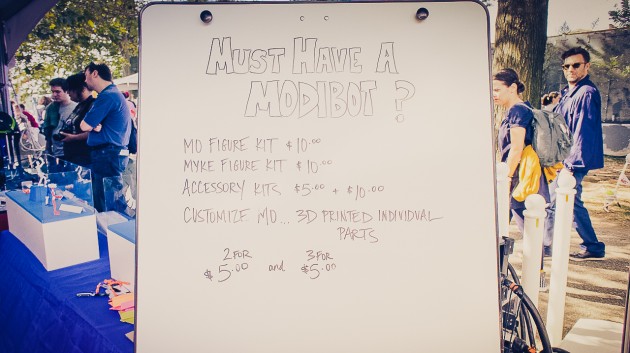 MUST HAVE A
MODIBOT ?
MO FIGURE KIT $10.00
MYKE FIGURE KIT $10.00
ACCESSORY KITS $5.00 + $10.00
CUSTOMIZE MO... 3D PRINTED INDIVIDUAL
PARTS
2 FOR $5.00 and 3 FOR $5.00